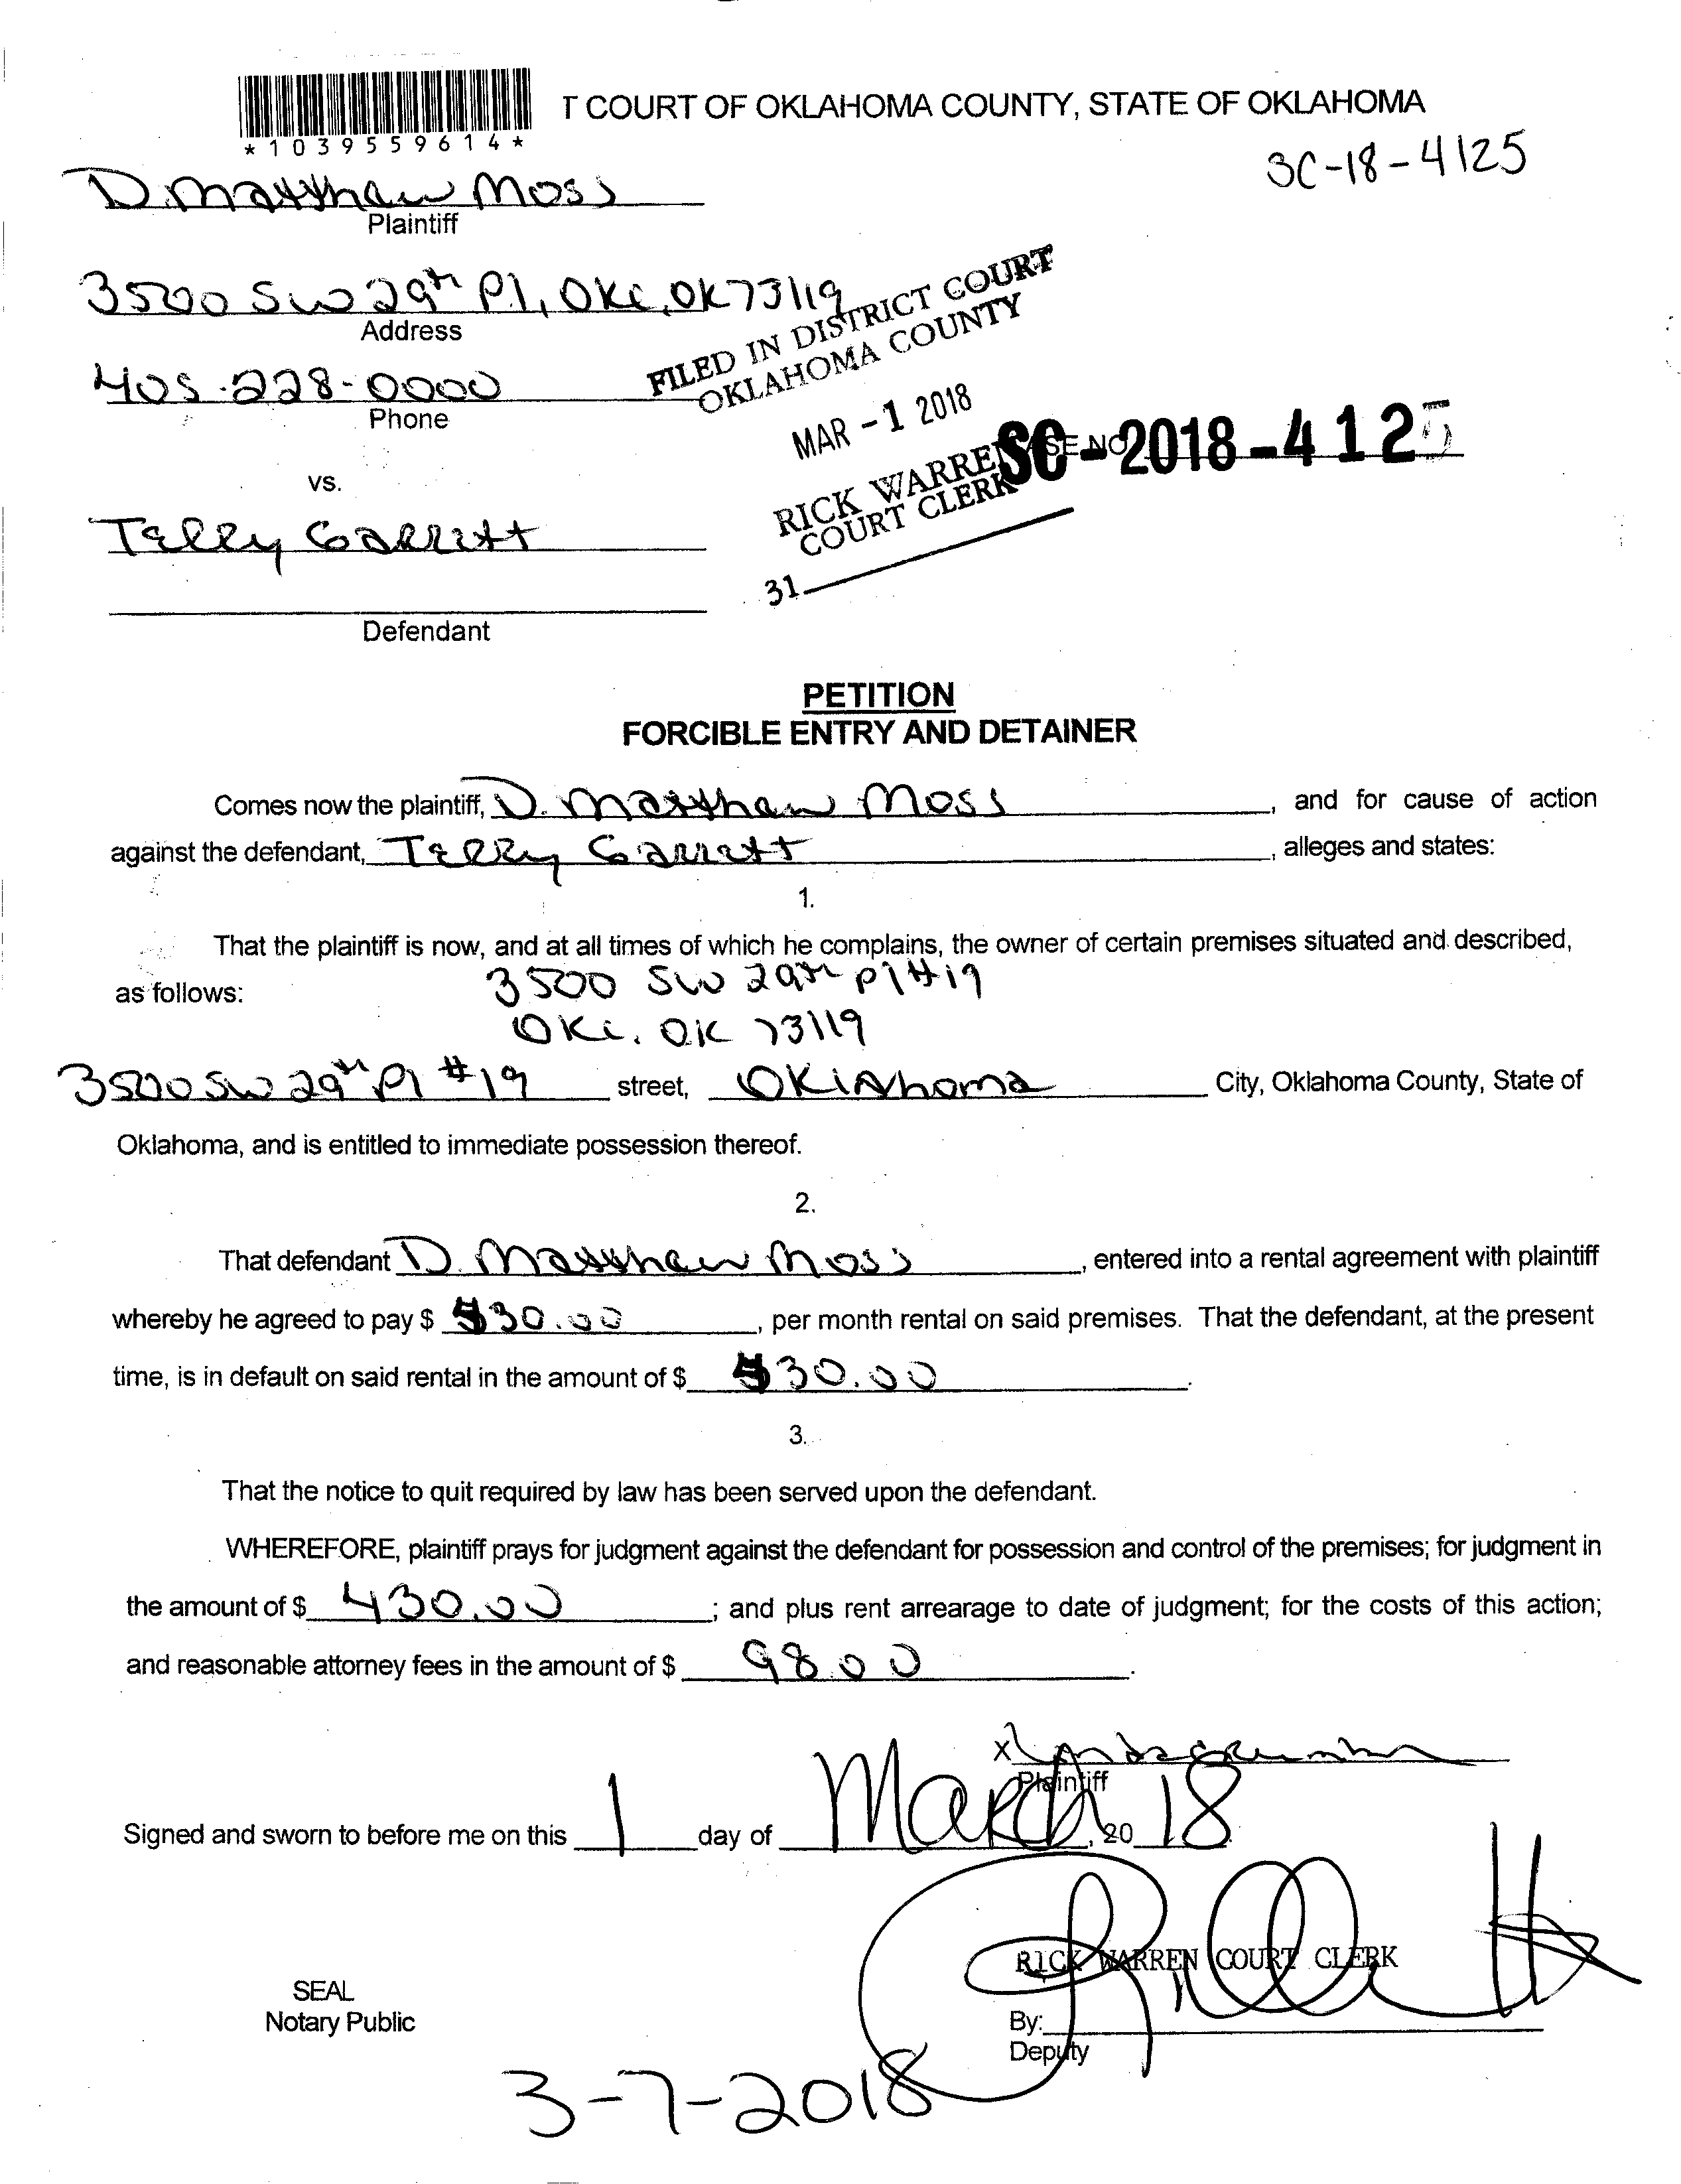 T COURT OF OKLAHOMA COUNTY, STATE OF OKLAHOMA
*1039559614*
SC-18-4125
D. Matthew Moss
Plaintiff
3500 SW 29th Pl, OKC, OK 73119
Address
FILED IN DISTRICT COURT
OKLAHOMA COUNTY
405-228-0000
Phone
MAR -1 2018
SC-2018-4125
RICK WARREN
COURT CLERK
31
vs.
Terry Garrett
Defendant
PETITION
FORCIBLE ENTRY AND DETAINER
Comes now the plaintiff, D. Matthew Moss, and for cause of action
against the defendant, Terry Garrett, alleges and states:
1.
That the plaintiff is now, and at all times of which he complains, the owner of certain premises situated and described,
as follows: 3500 SW 29th Pl #19
OKC. OK 73119
3500 SW 29th Pl #19 street, Oklahoma City, Oklahoma County, State of
Oklahoma, and is entitled to immediate possession thereof.
2.
That defendant D. Matthew Moss, entered into a rental agreement with plaintiff
whereby he agreed to pay $ 30.00, per month rental on said premises. That the defendant, at the present
time, is in default on said rental in the amount of $ 30.00.
3.
That the notice to quit required by law has been served upon the defendant.
WHEREFORE, plaintiff prays for judgment against the defendant for possession and control of the premises; for judgment in
the amount of $ 430.00; and plus rent arrearage to date of judgment; for the costs of this action;
and reasonable attorney fees in the amount of $ 98.00.
X
Plaintiff
Signed and sworn to before me on this 1 day of March, 20 18.
RICK WARREN COURT CLERK
SEAL
Notary Public
By:
Deputy
3-7-2018